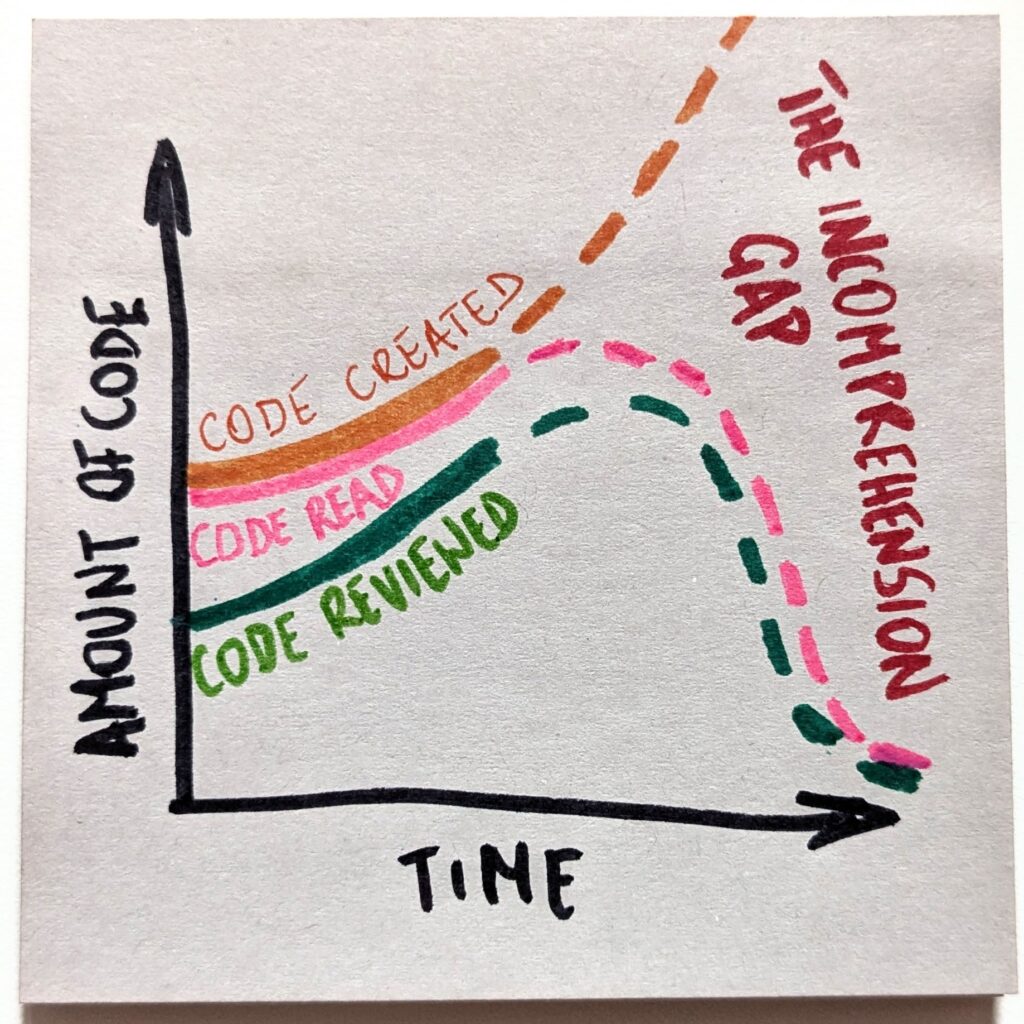 THE INCOMPREHENSION
GAP
CODE CREATED
CODE READ
CODE REVIEWED
AMOUNT OF CODE
TIME